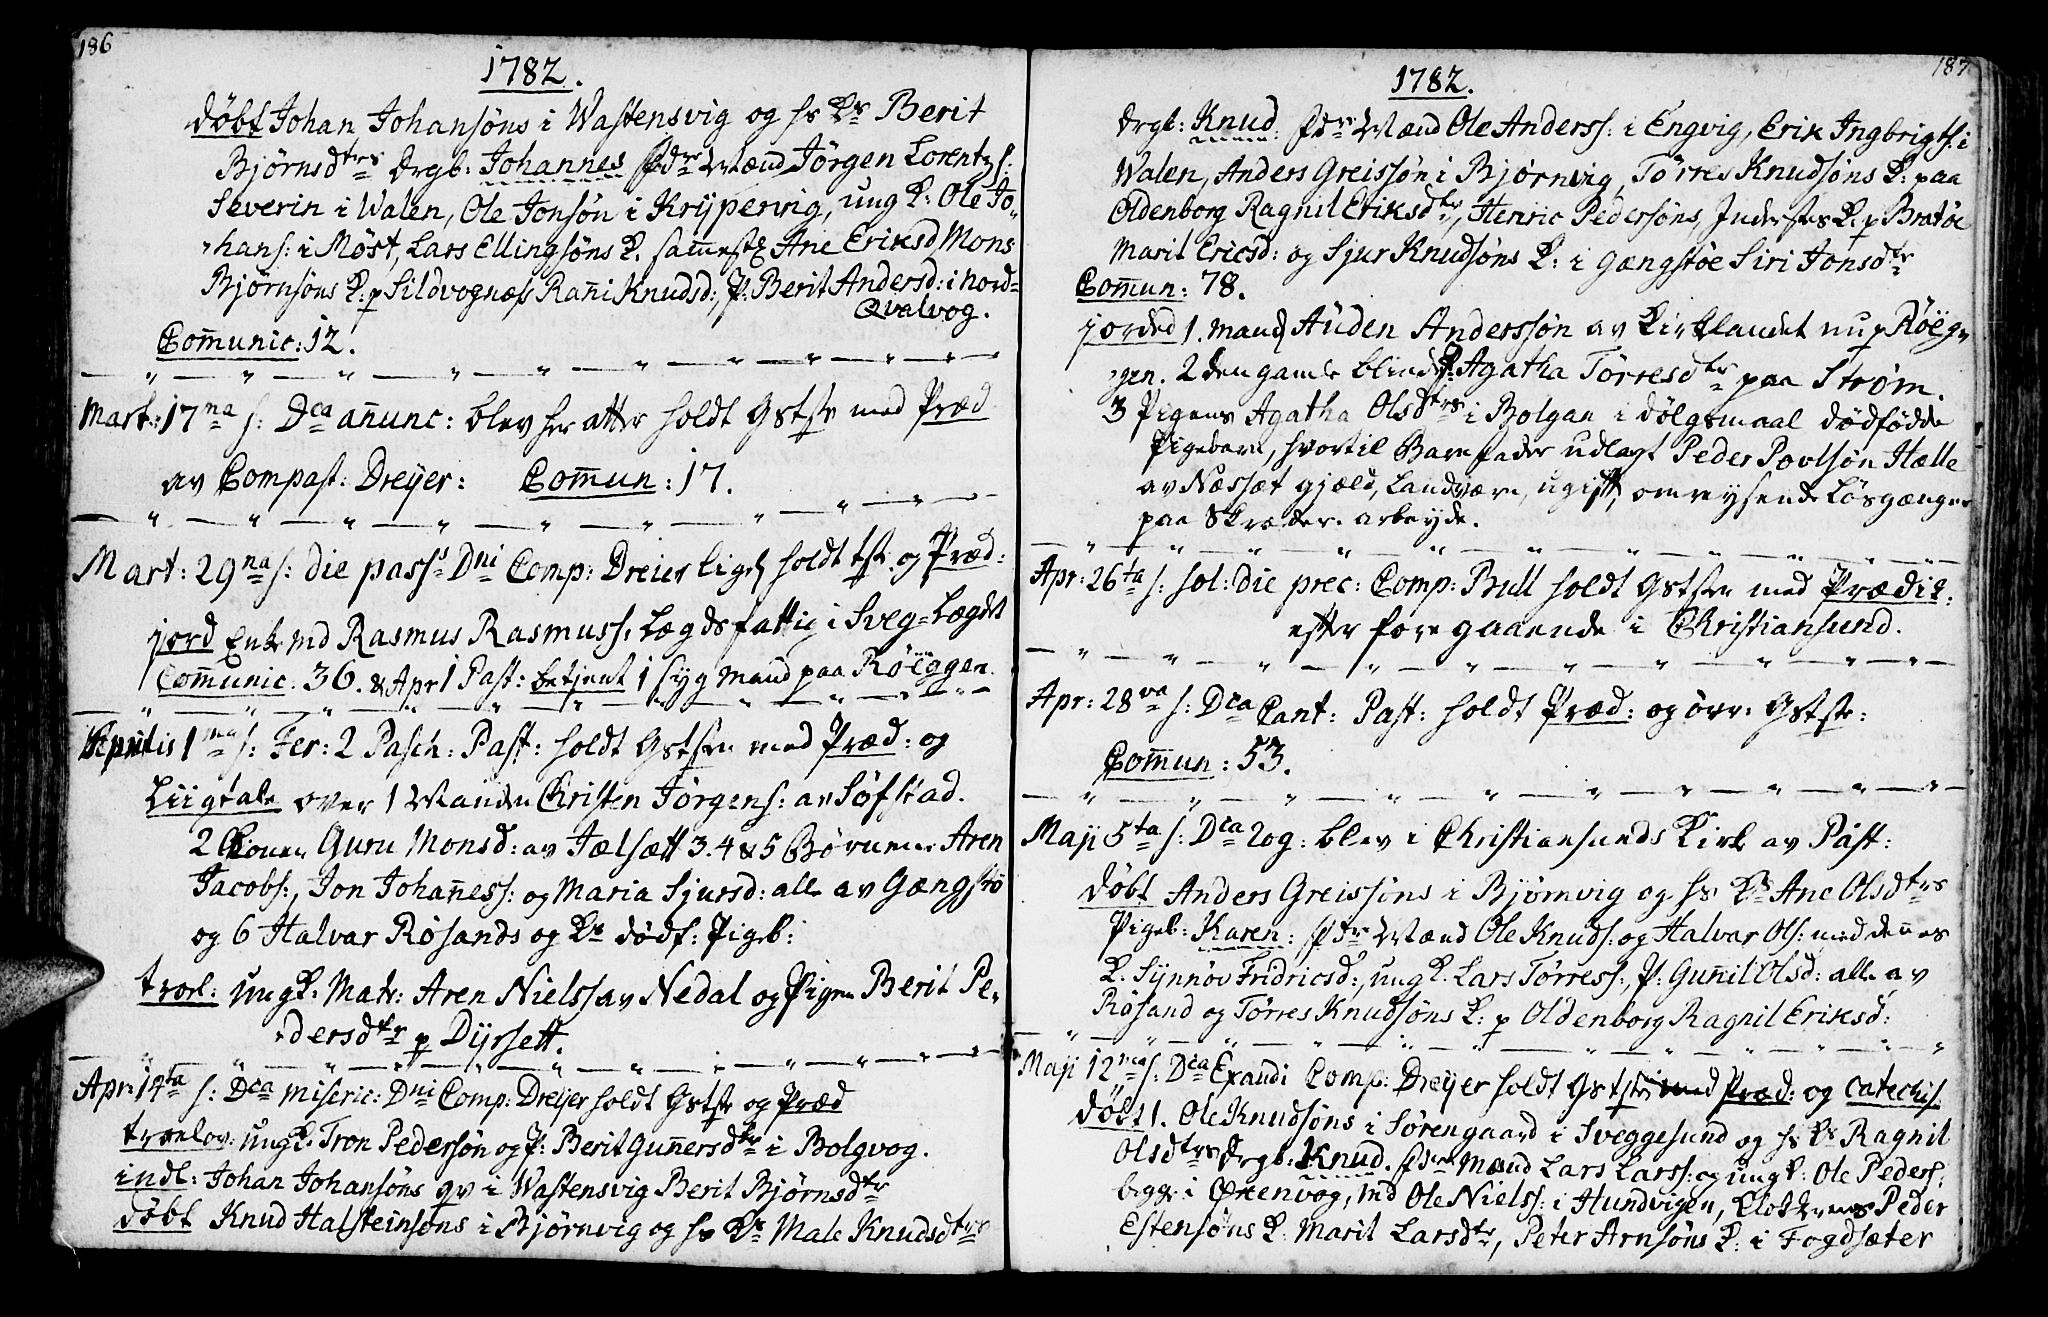 186
1782.
døbt Johan Johansøns i Wastensvig og hs Ks Berit
Bjørnsdtrs drgb: Johannes fdr Mænd Jørgen Lorentzs:
Severin i Walen, Ole Jonsøn i Krypervig, ung K: Ole Jo„
„hans: i Møst, Lars Ellingsøns K. sammest Ane Eriksd Mons
Bjørnsøns K: p Sildvognæs Ranni Knudsd:, P: Berit Andersd: i Nord=
Qvalvog.
Communic: 12.
Mart: 17na s: Dca annunc: blev her atter holdt Gstste med Præd
av Compast: Dreyer: Commun: 17.
Mart: 29na s: die pass: Dni Comp: Dreier holdt tst. og Præd:
jord Enkemd Rasmus Rasmuss: Lægdsfattig i Sveg=Lægdet
Communic. 36. & Apr 1 Past: betjent 1 syg Mand paa Røeggen.
Aprilis 1ma s: Fer: 2 Pasch: Past: holdt Gststen med Præd: og
Liigtale over 1 Manden Christen Jørgens: av Søfstad.
2 Konen Guru Monsd: av Jælsætt 3. 4 & 5 Børnene Aren
Jacobs:, Jon Johanness: og Maria Sjursd: alle av Gængstø
og 6 Halvar Røsands og Ks dødf: Pigeb:
trol: ungK: Matr: Aren Nielss av Nedal og Pigen Berit Pe„
„dersdtr p Dyrsett.
Apr: 14ta s: Dca Miseric: Dni Comp: Dreyer holdt Gstste og Præd
trolov: ungK: Tron Pedersøn og P: Berit Gunnersdtr i Bolgvog.
indl: Johan Johansøns qv i Wastensvig Berit Bjørnsdtr
døbt Knud Halsteinsøns i Bjørnvig og hs Ks Male Knudsdtrs
187
1782.
drgb: Knud fdr Mænd Ole Anderss: i Engvig, Erik Ingbrigts: i
Walen, Anders Greissøn i Bjørnvig, Tørres Knudsøns K: paa
Oldenborg Ragnil Eriksdtr, Henric Pedersøns, Inderstes K. p Bratøe
Marit Ericsd: og Sjur Knudsøns K: i Gængstøe Siri Jonsdtr
Commun: 78.
jorded 1. mand Auden Anderssøn av Kirklandet nu p Røeg„
„gen. 2 den gamle blinde P: Agatha Tørresdtr paa Strøm.
3 Pigens Agatha Olsdtrs i Bolgan i dølgsmaal dødfødde
Pigebarn, hvortil Barnefader udlagt Peder Povlsøn Hælle
av Næssæt gjæld, Landværn, ugift, omreysende Løsgænger
paa Skræder-arbeyde.
Apr: 26ta s: sol: die prec: Comp: Bull holdt Gststen med Prædik:
efter foregaaende i Christiansund.
Apr: 28va s: Dca Cant: Past: holdt Præd: og øvr: Gstste:
Commun: 53.
Maji 5ta s: Dca Rog: blev i Christiansunds Kirk av Past:
døbt Anders Greissøns i Bjørnvig og hs Ks Ane Olsdtrs
Pigeb: Karen: fdr Mænd Ole Knuds: og Halvar Ols: med dennes
K. Synnøv Fridricsd:, ungK. Lars Tørress:, P: Gunnil Olsd: alle av
Røsand og Tørres Knudsøns K: p Oldenborg Ragnil Eriksd:
Maji 12ma s: Dca Exaudi Comp: Dreyer holdt Gstste med Præd: og Catechis.
døbt 1. Ole Knudsøns i Sørengaard i Sveggesund og hs Ks Ragnil
Olsdtrs drgb: Knud. fdr Mænd Lars Larss: og ungK: Ole Peders:
begge i Ørenvog, md Ole Niels: i Hundvigen, Klokkerens Peder
Estensøns K: Marit Larsdtr, Peter Arnsøns K: i Fogdsæter